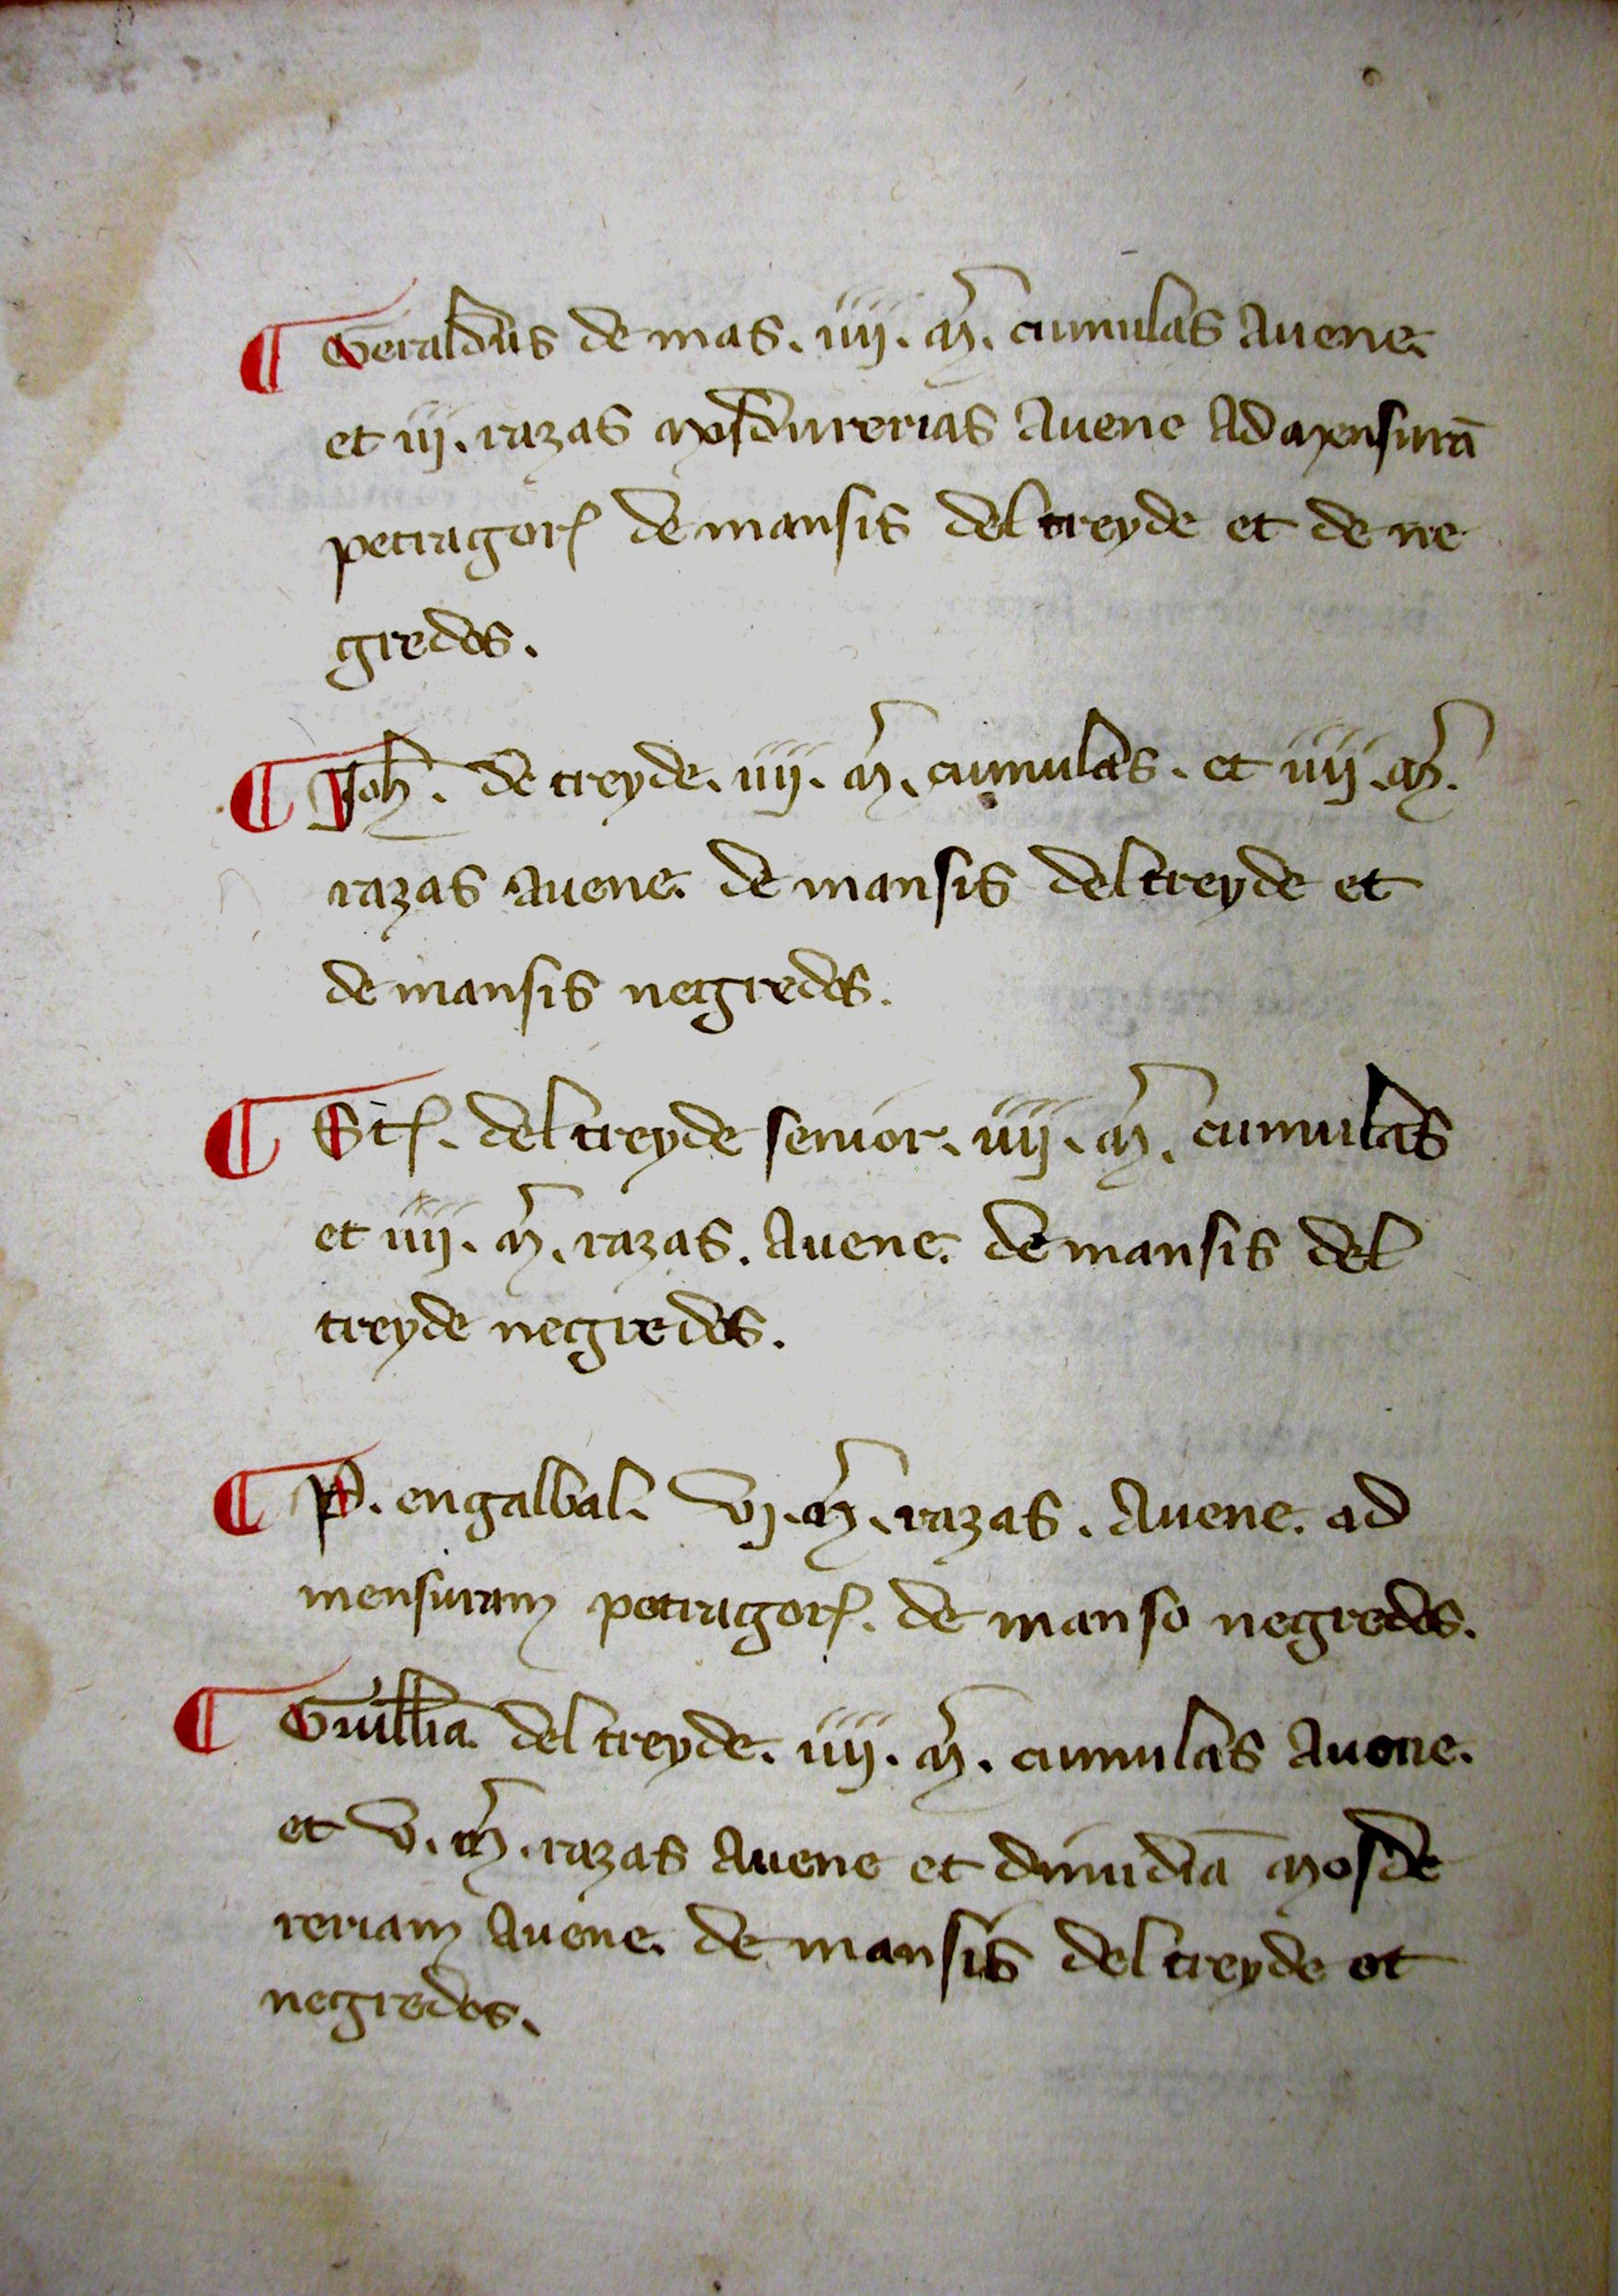 ¶ Geraldus de mas. iiij. m̃. cumulas auene.
et iij. razas mosdurerias auene ad mensurã
petragorꝭ de mansis deltreyde et de ne
gredos.
¶ Joh̃. de treyde. iiij. m̃. cumulas. et iiij. m̃.
razas auene. de mansis deltreyde et
de mansis negredos.
¶ Stꝭ. deltreyde senior. iiij. m̃. cumulas
et iiij. m̃. razas. auene. de mansis del
treyde negredos.
¶ P. engalbal. vj. m̃. razas. auene. ad
mensuram petragorꝭ. de manso negredos.
¶ Guill̃a. deltreyde. iiij. m̃. cumulas auene.
et v. m̃. razas auene et dimidiã mosde
reriam auene. de mansis deltreyde et
negredos.